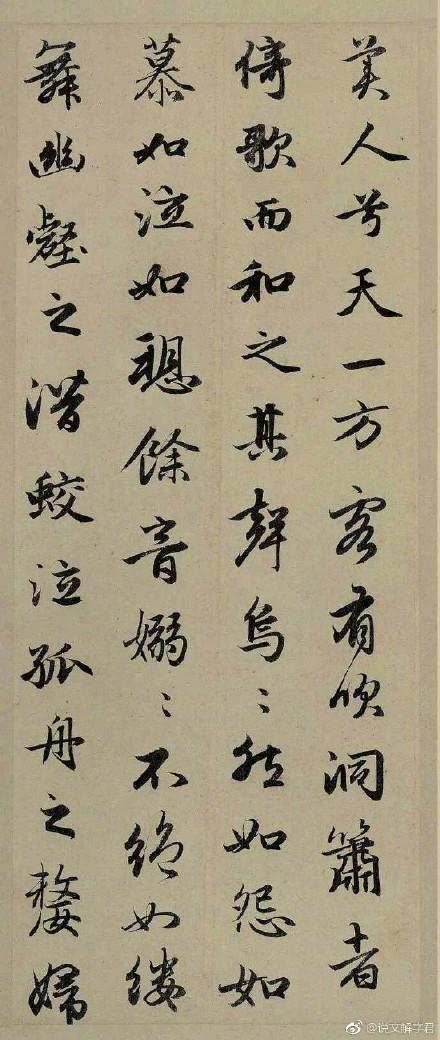 美人兮天一方客有吹洞簫者
倚歌而和之其聲烏〻然如怨如
慕如泣如愬餘音嫋〻不絕如縷
舞幽壑之潛蛟泣孤舟之嫠婦
@说文解字君